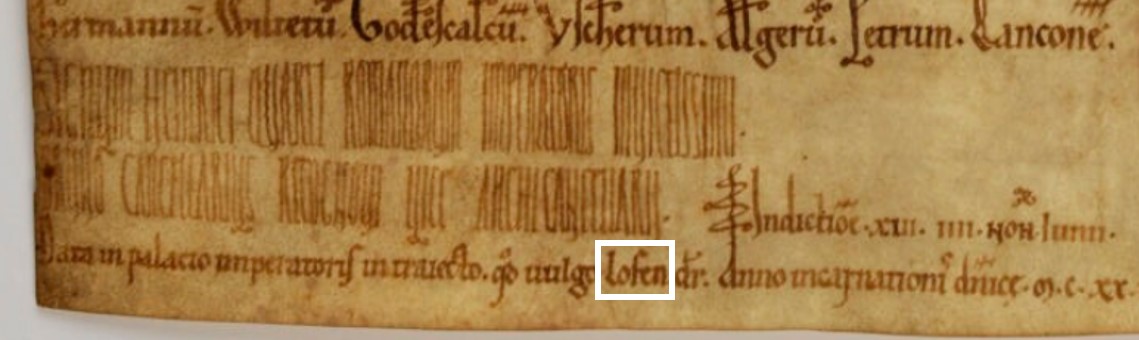 hermannū. Godescalcū. Yscherum. Algerū. Petrum. Lancone.
HEINRICI QUARTI ROMANORUM IMPERATORIS INVICTISSIMI
CANCELLARIUS RECOGNOVI VICE ARCHICANCELLARII. Indictiōe. xiii. iiii. non. iunii.
Data in palacio imperatoris in traiecto. qd uulgo lofen dr. Anno incarnationis dnice. m. c. xx.